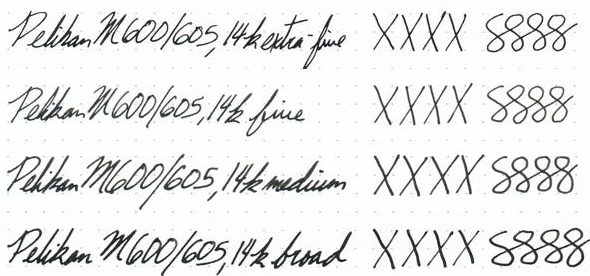 Pelikan M600/605, 14k extra-fine XXXX 8888
Pelikan M600/605, 14k fine XXXX 8888
Pelikan M600/605, 14k medium XXXX 8888
Pelikan M600/605, 14k broad XXXX 8888